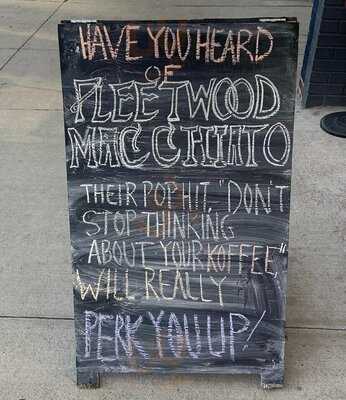 HAVE YOU HEARD
OF
FLEETWOOD
MACCHIATO
THEIR POP HIT, "DON'T
STOP THINKING
ABOUT YOUR KOFFEE,"
WILL REALLY
PERK YOU UP!